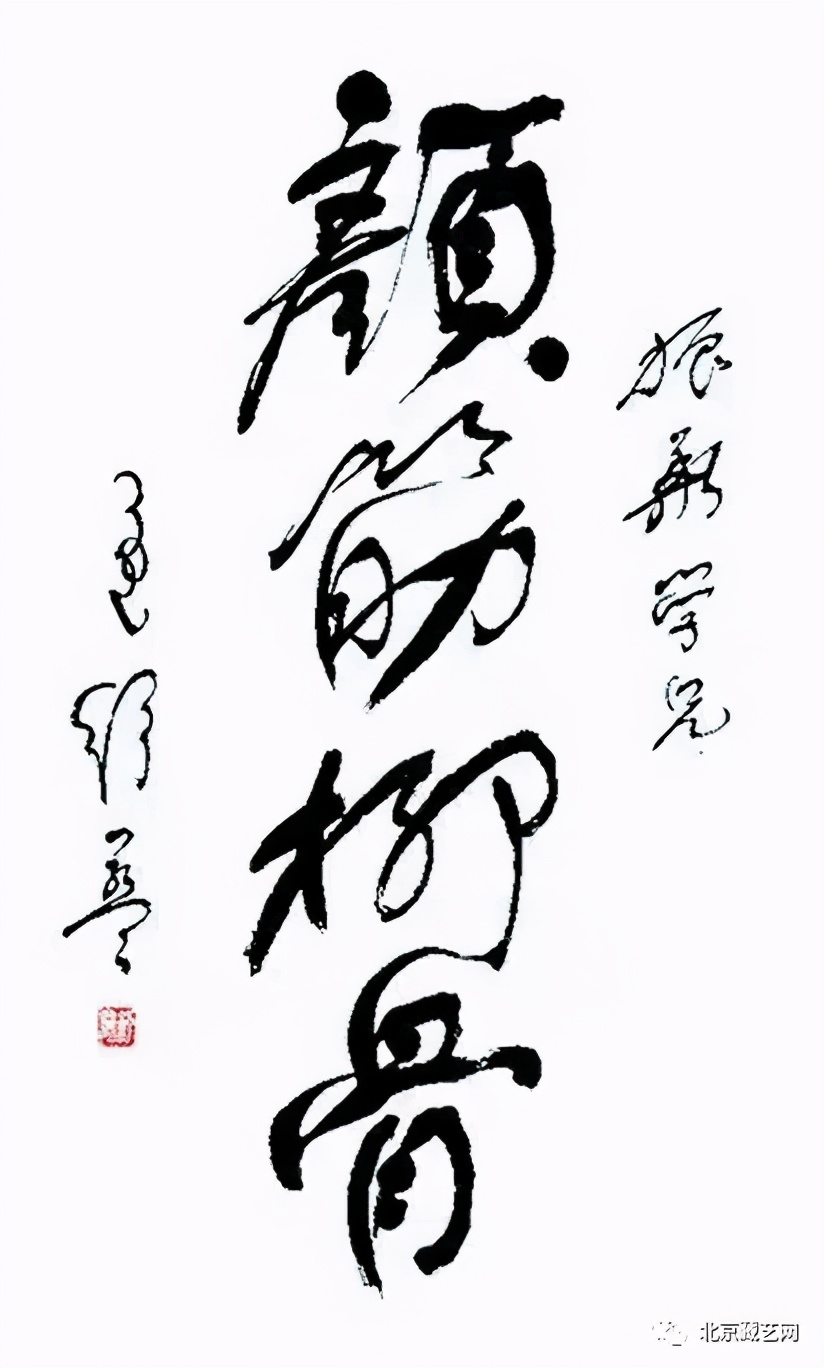 振新学兄
顏筋柳骨
北京政艺网